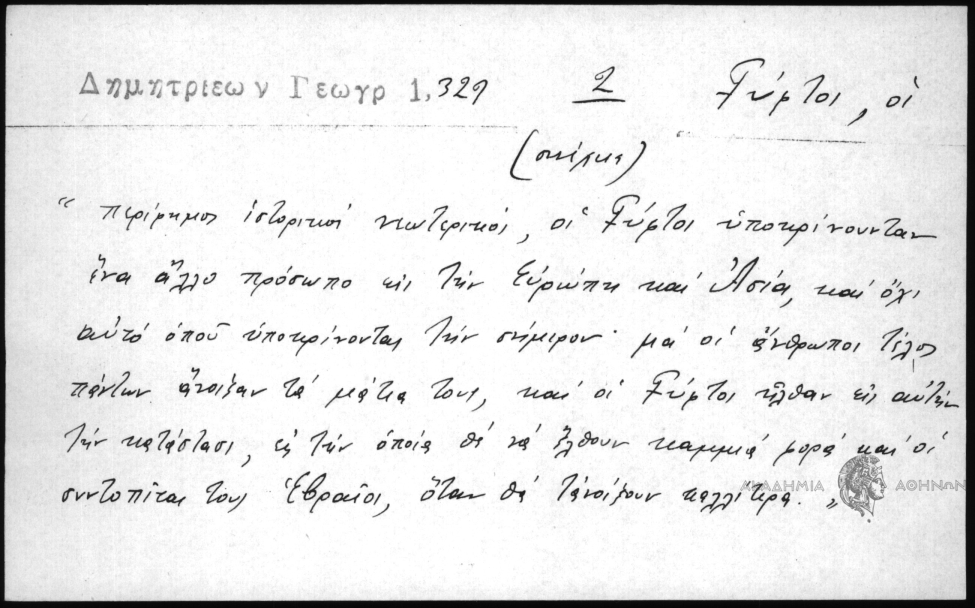 Δημητριεων Γεωγρ 1, 329 2 Γύφτοι, οἱ
“ περίφημοι ἱστορικοί νεωτερικοί, οἱ Γύφτοι ὑποκρίνουνταν
ἕνα ἄλλο πρόσωπο εἰς τήν Εὐρώπη καί Ἀσία, καί ὄχι
αὐτό ὁποῦ ὑποκρίνονται τήν σήμερον· μά οἱ ἄνθρωποι τέλος
πάντων ἄνοιξαν τά μάτια τους, καί οἱ Γύφτοι ἦλθαν εἰς αὐτήν
τήν κατάστασι, εἰς τήν ὁποία θέ νά ἔλθουν καμμιά φορά καί οἱ
συντοπῖται τους Ἑβραῖοι, ὅταν θά τἀνοίξουν καλλίτερα. „
ΑΚΑΔΗΜΙΑ ΑΘΗΝΩΝ